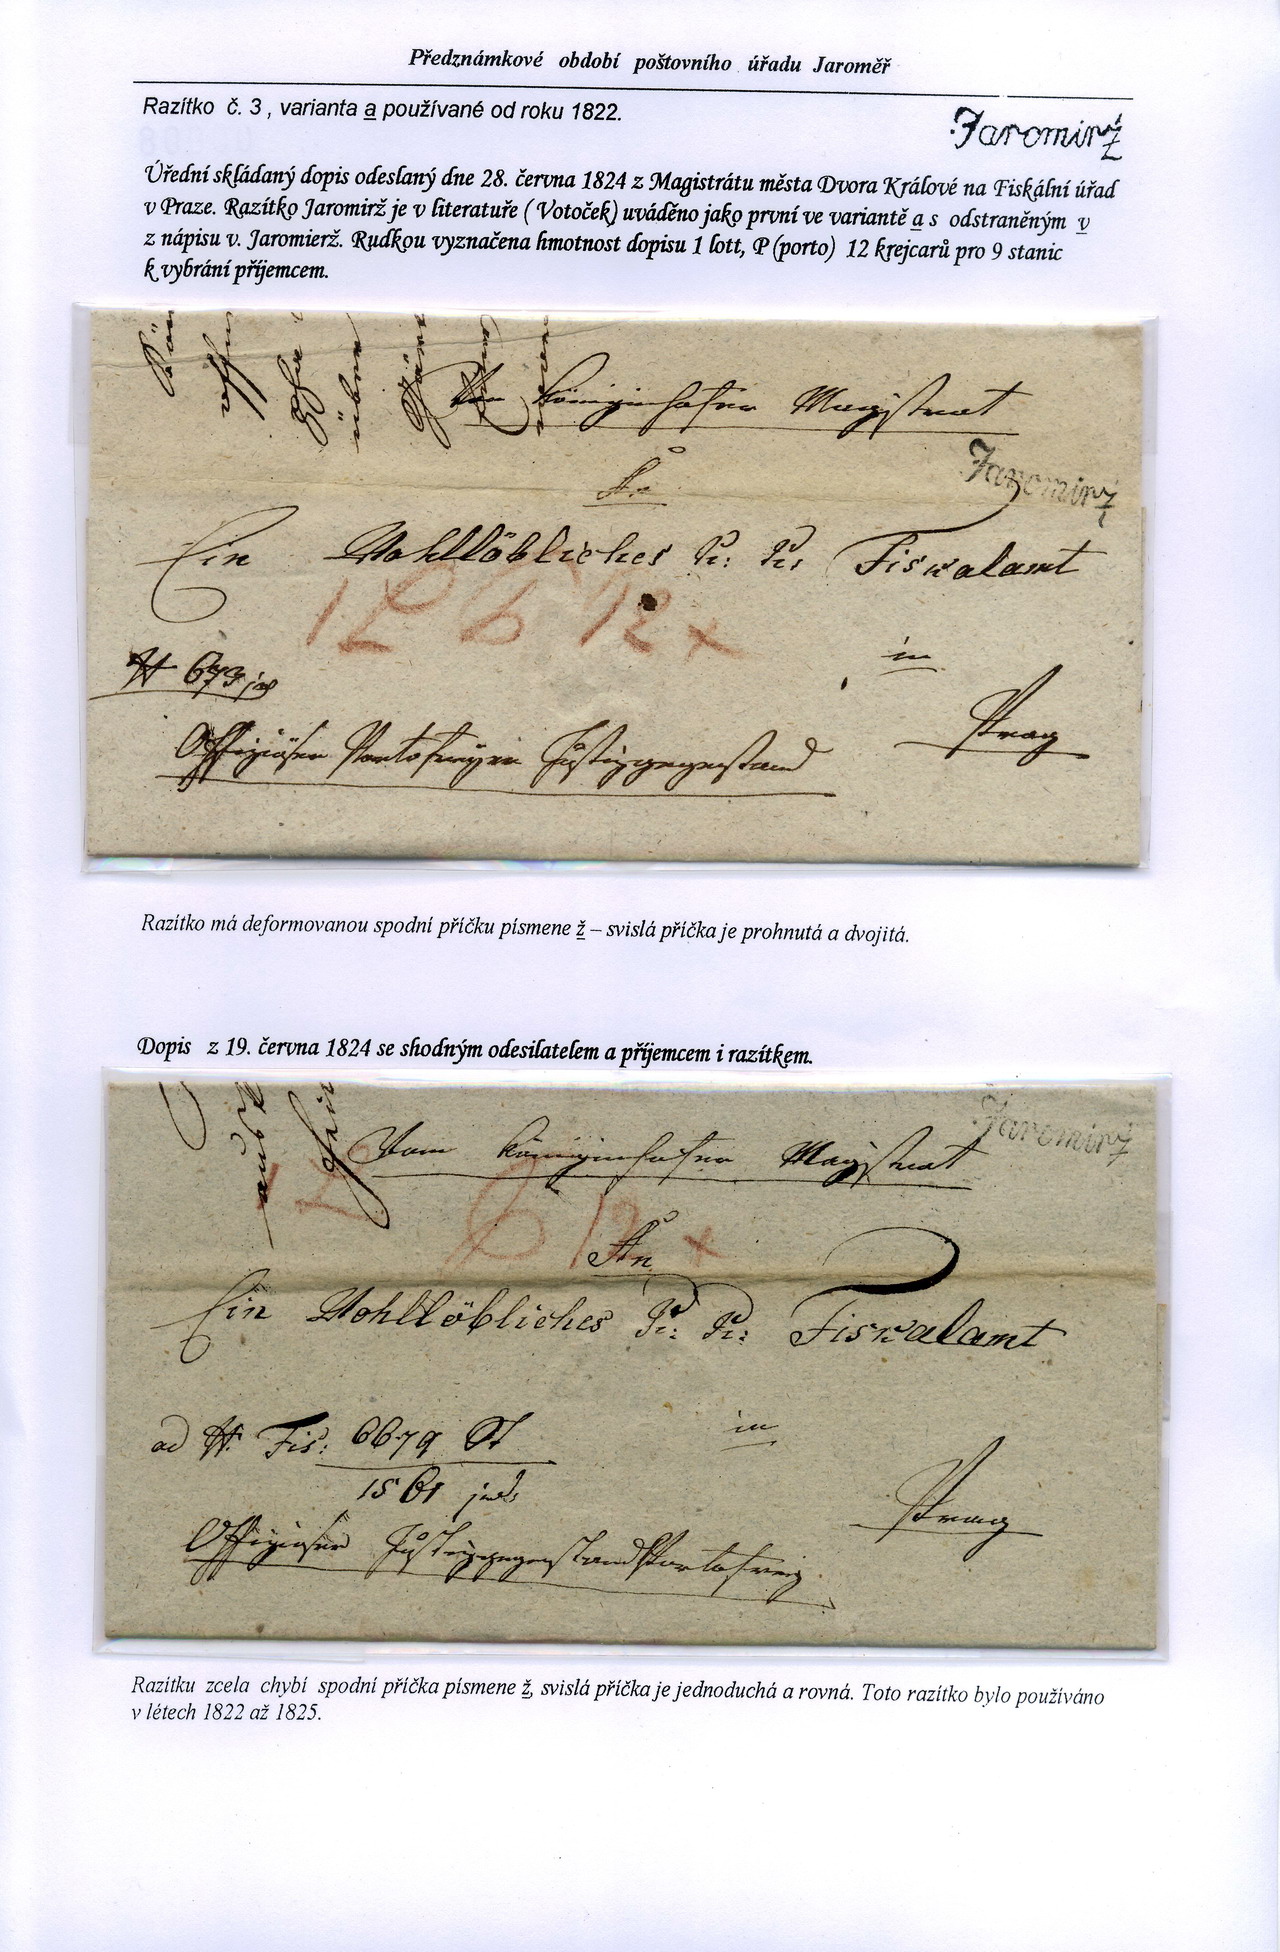 Předznámkové období poštovního úřadu Jaroměř
Razítko č. 3 , varianta a používané od roku 1822.
Jaromirž
Úřední skládaný dopis odeslaný dne 28. června 1824 z Magistrátu města Dvora Králové na Fiskální úřad
v Praze. Razítko Jaromirž je v literatuře ( Votoček) uváděno jako první ve variantě a s odstraněným v
z nápisu v. Jaromierž. Rudkou vyznačena hmotnost dopisu 1 lott, P (porto) 12 krejcarů pro 9 stanic
k vybrání příjemcem.
Vom Königinhofer Magistrat
Jaromirž
An
Ein Wohllöbliches K: K: Fiskalamt
12 x
in
673
Prag
Offiziöser Portofreyer Justizgegenstand
Razítko má deformovanou spodní příčku písmene ž – svislá příčka je prohnutá a dvojitá.
Dopis z 19. června 1824 se shodným odesilatelem a příjemcem i razítkem.
Jaromirž
Vom Königinhofer Magistrat
12 x
An
Ein Wohllöbliches K: K: Fiskalamt
ad N. Fis: 6679
in
1561
Prag
Offiziöser Justizgegenstand Portofrey
Razítku zcela chybí spodní příčka písmene ž, svislá příčka je jednoduchá a rovná. Toto razítko bylo používáno
v létech 1822 až 1825.